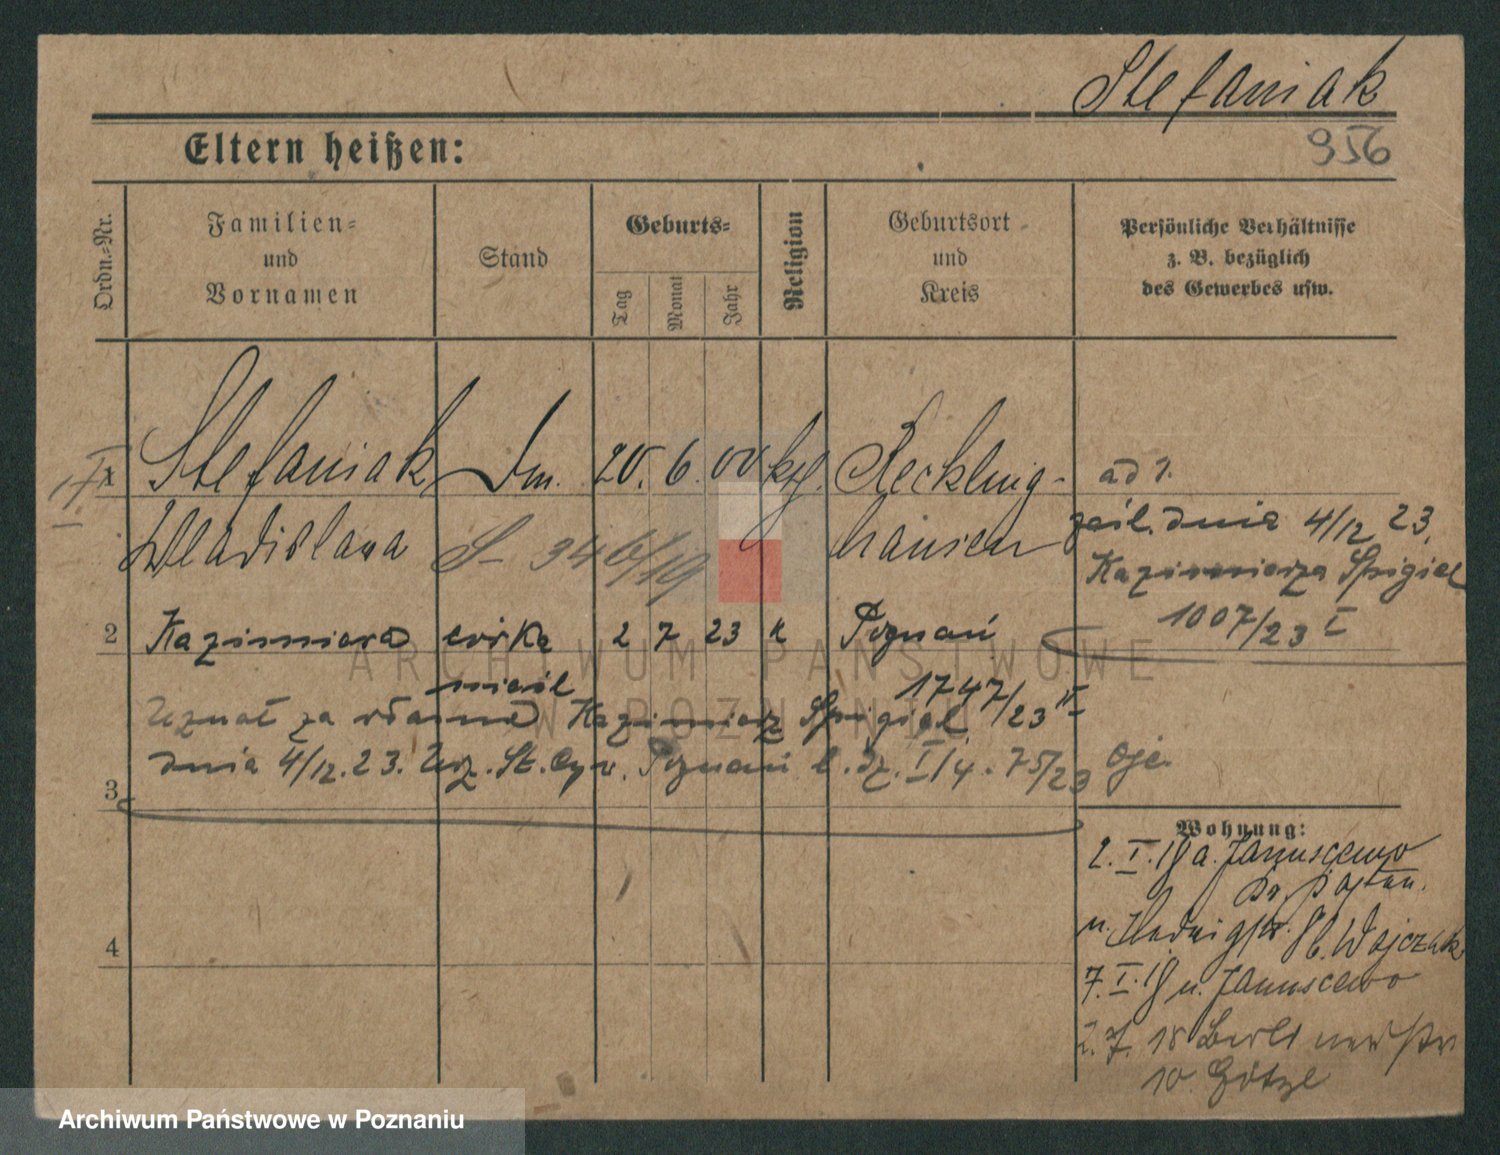 Stefaniak
956
Eltern heißen:
Ordn.-Nr.
Familien- und Vornamen
Stand
Geburts-
Tag
Monat
Jahr
Religion
Geburtsort und Kreis
Persönliche Verhältnisse z. B. bezüglich des Gewerbes usw.
1 Stefaniak Dm. 20. 6. 00 kth. Reckling-
Wladislawa hausen
S- 346/19
ad 1.
zaśl. dnia 4/12 23.
Kazimierza Spigiel
1007/23 I
2 Kazimiera córka 2 7 23 k Poznań
nieśl 1747/23 V
Uznał za własne Kazimierz Spigiel
dnia 4/12. 23. Urz. St. Cyw. Poznań l. dz. I/4. 75/23 ojc.
3
Wohnung:
2. I. 19 a. Januscewo
Kr. Posten.
n. Hedwigstr. Wojczak
7. I. 19 n. Januscewo
2. 7. 18
10 Götze
4
ARCHIWUM PAŃSTWOWE
W POZNANIU
Archiwum Państwowe w Poznaniu